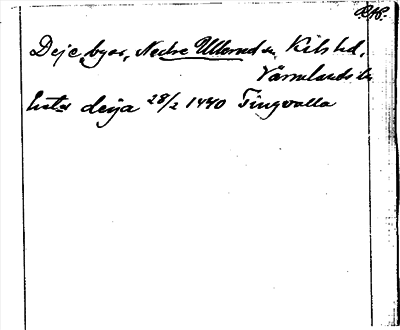 RAP.
Deje, byar, Nedre Ullerud sn, Kils hd,
Värmlands län
hester deija 28/2 1440 Tingvalla